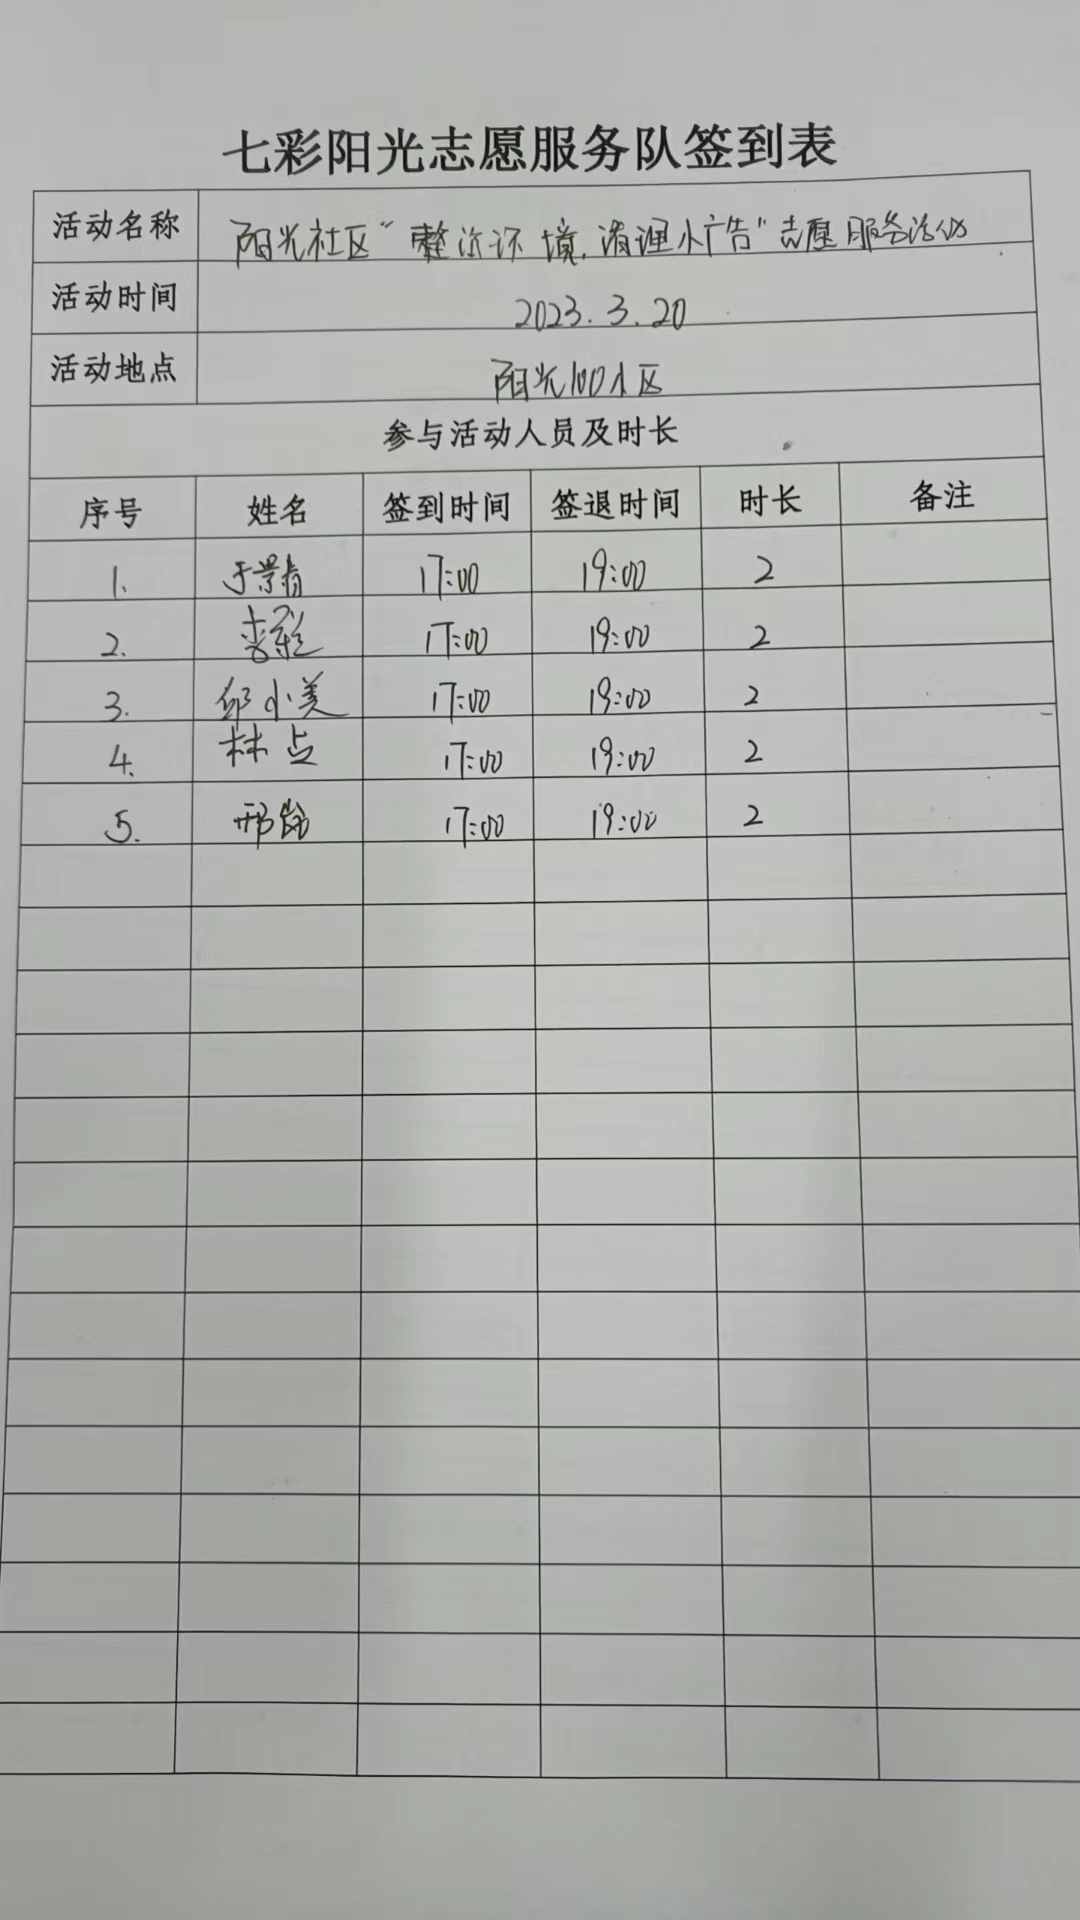 七彩阳光志愿服务队签到表
活动名称 阳光社区“整治环境,清理小广告”志愿服务活动
活动时间 2023.3.20
活动地点 阳光100小区
参与活动人员及时长
序号 姓名 签到时间 签退时间 时长 备注
1. 于景青 17:00 19:00 2
2. 17:00 19:00 2
3. 邱小美 17:00 19:00 2
4. 林点 17:00 19:00 2
5. 邢 17:00 19:00 2